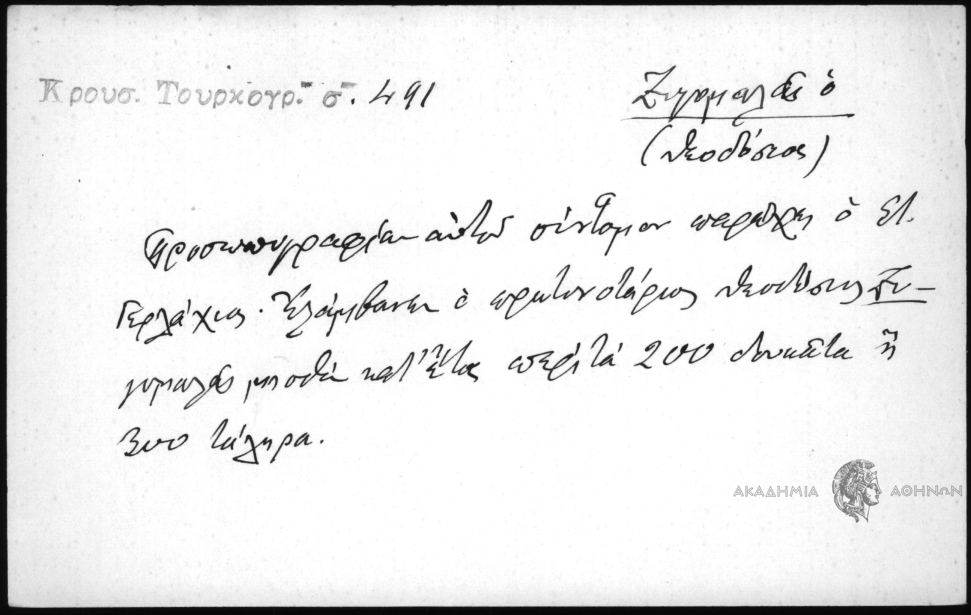 Κρουσ. Τουρκογρ. σ. 491
Ζυγομαλᾶς ὁ
(Θεοδόσιος)
Προσωπογραφίαν αὐτοῦ σύντομον παρέχει ὁ Στ.
Γερλάχιος. Ἐλάμβανεν ὁ πρωτονοτάριος Θεοδόσιος Ζυ-
γομαλᾶς μισθὸν κατ' ἔτος περὶ τὰ 200 δουκάτα ἢ
300 τάληρα.
ΑΚΑΔΗΜΙΑ ΑΘΗΝΩΝ